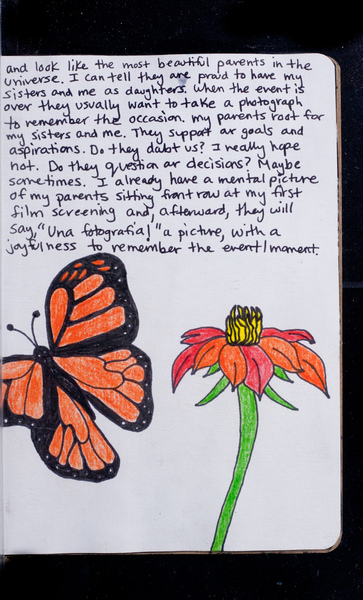 and look like the most beautiful parents in the
universe. I can tell they are proud to have my
sisters and me as daughters. When the event is
over they usually want to take a photograph
to remember the occasion. my parents root for
my sisters and me. They support ar goals and
aspirations. Do they dabt us? I really hope
not. Do they question ar decisions? Maybe
sometimes. I already have a mental picture
of my parents sitting front row at my first
film screening and, afterward, they will
say, "Una fotografia!" a picture, with a
joyfulness to remember the event/moment.